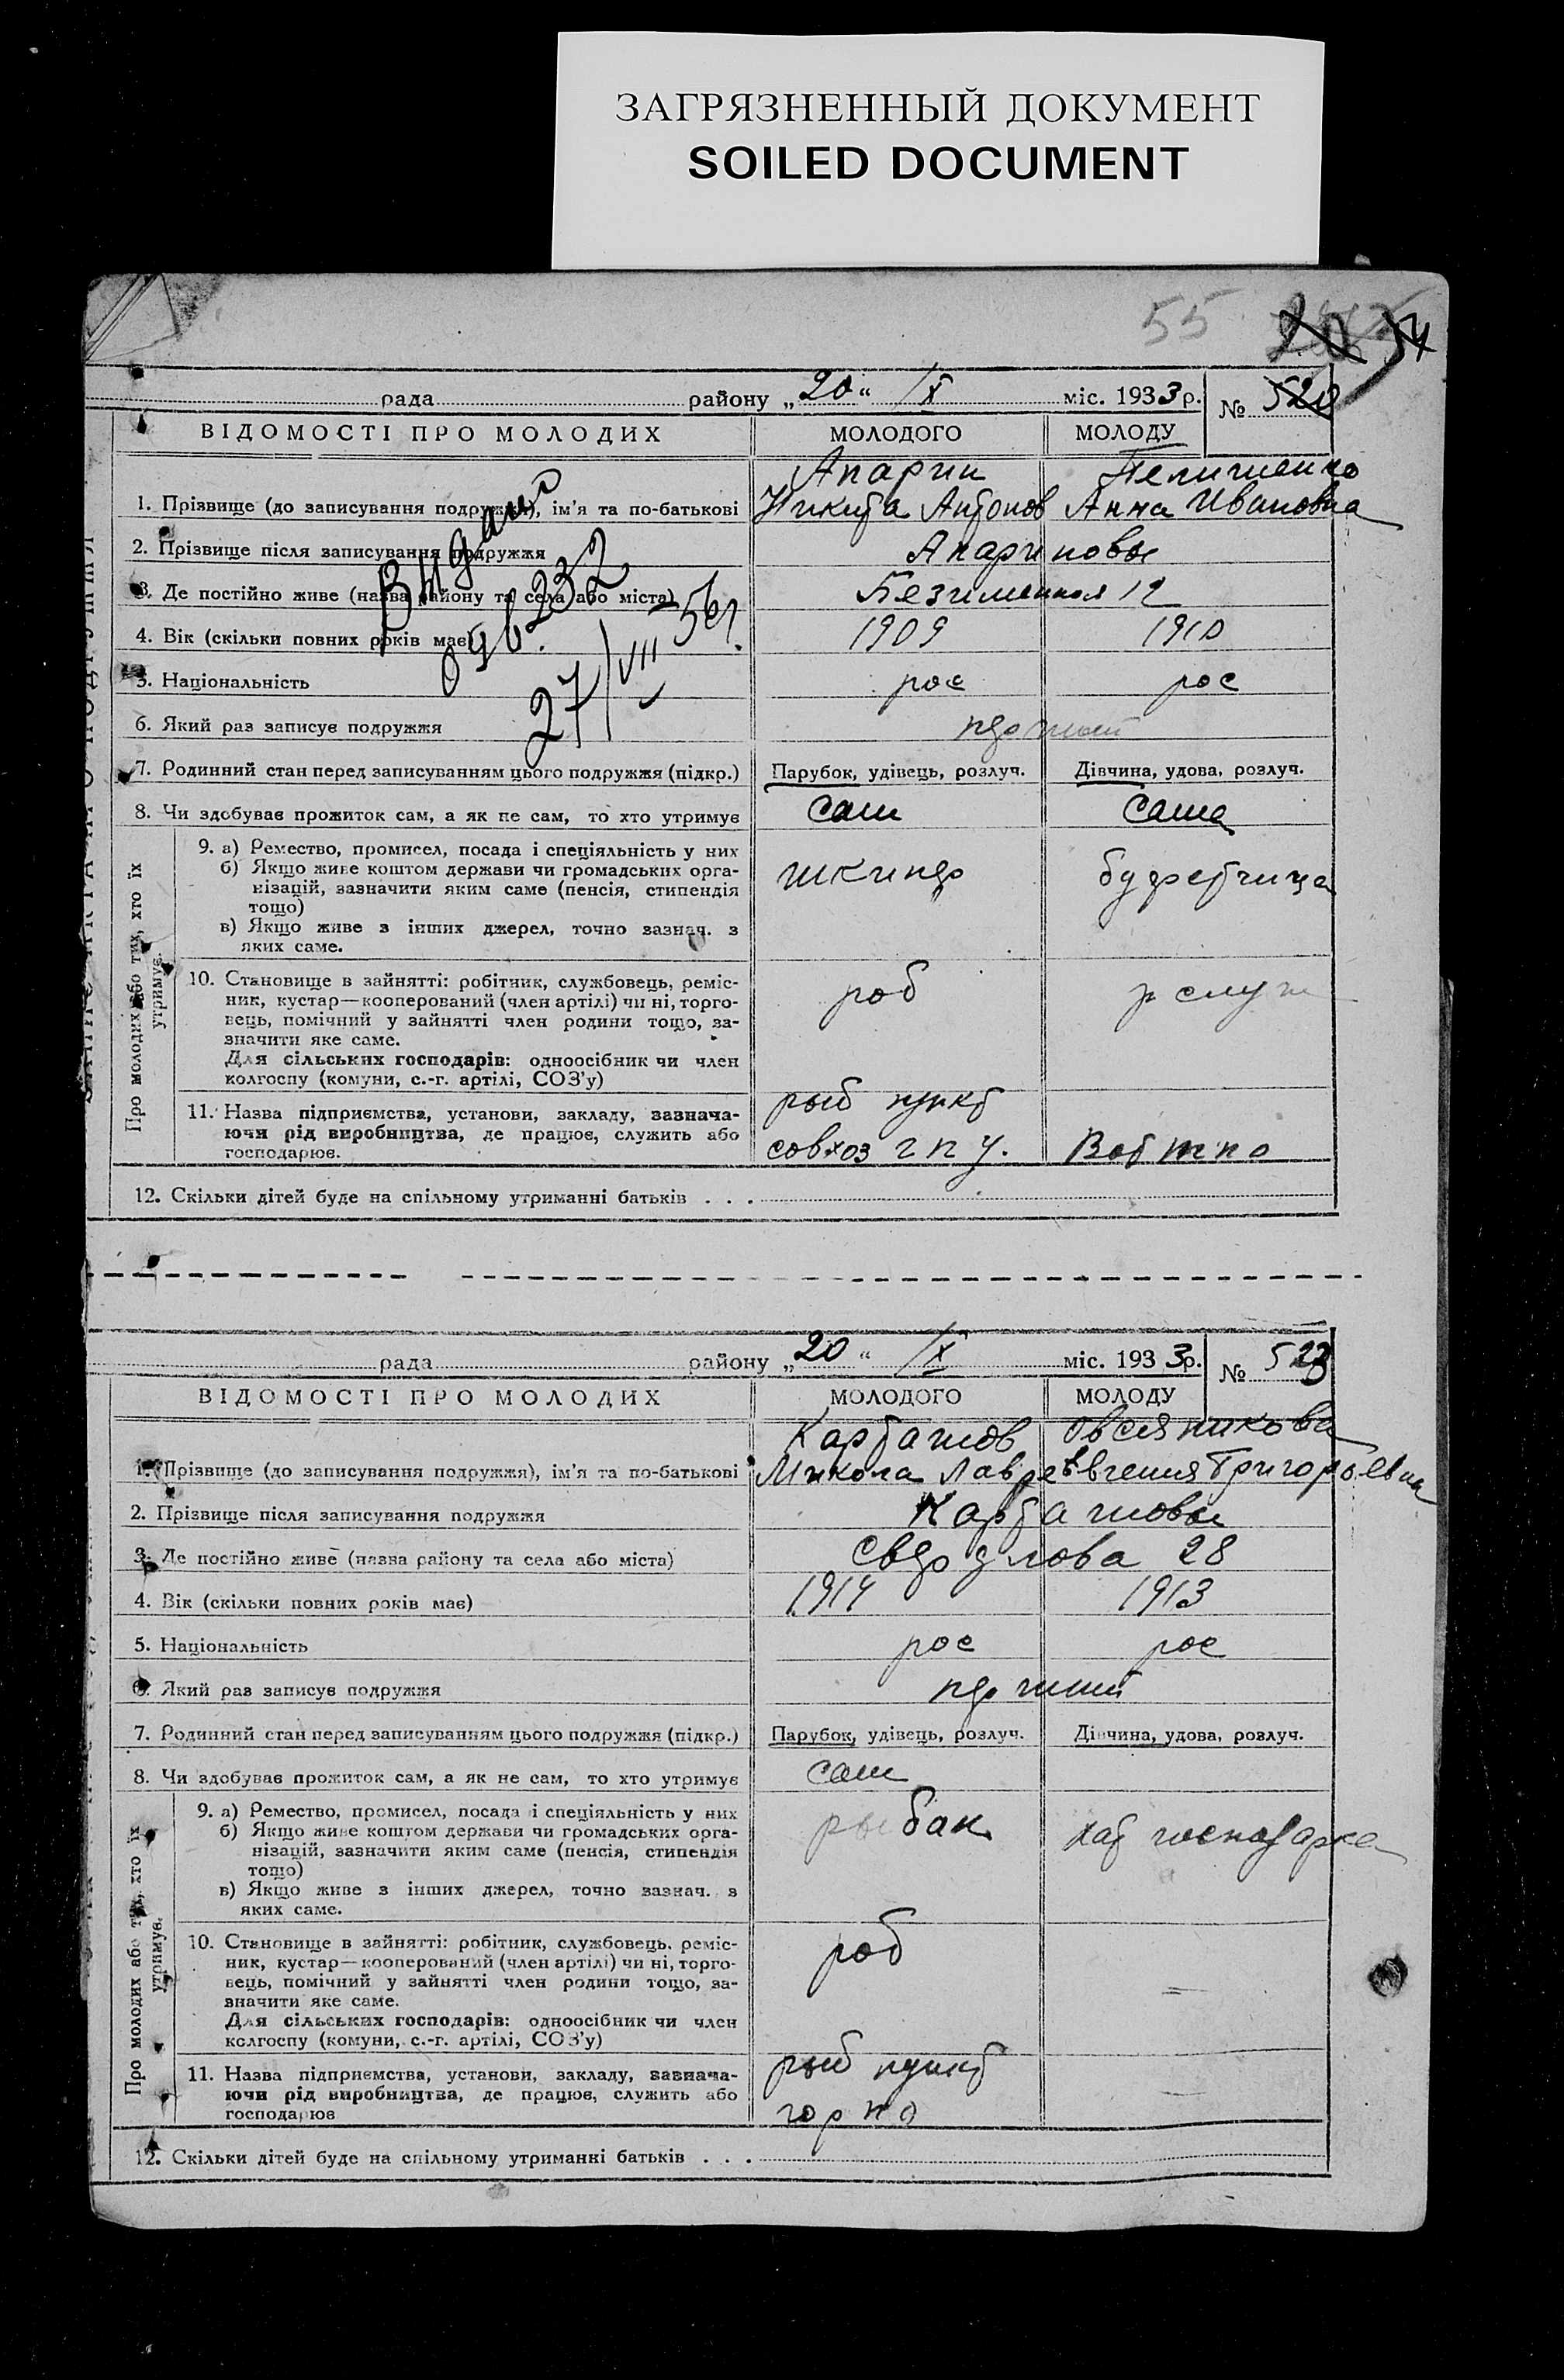 ЗАГРЯЗНЕННЫЙ ДОКУМЕНТ
SOILED DOCUMENT
55
рада району „20“ IX міс. 1933р. № 520
ВІДОМОСТІ ПРО МОЛОДИХ МОЛОДОГО МОЛОДУ
Апарин
1. Прізвище (до записування подружжя), ім'я та по-батькові Никита Антонов Анна Ивановна
2. Прізвище після записування подружжя
3. Де постійно живе (назва району та села або міста) Безименная 12
4. Вік (скільки повних років має) 1909 1910
Видано
232
27/VII 56г.
5. Національність рос рос
6. Який раз записує подружжя
7. Родинний стан перед записуванням цього подружжя (підкр.) Парубок, удівець, розлуч. Дівчина, удова, розлуч.
8. Чи здобуває прожиток сам, а як не сам, то хто утримує сам сама
Про молодих або тих, хто їх утримує.
9. а) Ремество, промисел, посада і спеціяльність у них
б) Якщо живе коштом держави чи громадських орга-
нізацій, зазначити яким саме (пенсія, стипендія
тощо)
в) Якщо живе з інших джерел, точно зазнач. з
яких саме.
шкипер буфетчица
10. Становище в зайнятті: робітник, службовець, реміс-
ник, кустар—кооперований (член артілі) чи ні, торго-
вець, помічний у зайнятті член родини тощо, за-
значити яке саме.
Для сільських господарів: одноосібник чи член
колгоспу (комуни, с.-г. артілі, СОЗ'у)
роб служ
11. Назва підприємства, установи, закладу, зазнача-
ючи рід виробництва, де працює, служить або
господарює.
рыб пункт
совхоз гпу.
12. Скільки дітей буде на спільному утриманні батьків . . .
рада району „20“ IX міс. 1933р. № 523
ВІДОМОСТІ ПРО МОЛОДИХ МОЛОДОГО МОЛОДУ
Карташов Овсяникова
1. Прізвище (до записування подружжя), ім'я та по-батькові Микола Лавре Евгения Григорьевна
2. Прізвище після записування подружжя Карташовы
3. Де постійно живе (назва району та села або міста) Свердлова 28
4. Вік (скільки повних років має) 1914 1913
5. Національність рос рос
6. Який раз записує подружжя перший
7. Родинний стан перед записуванням цього подружжя (підкр.) Парубок, удівець, розлуч. Дівчина, удова, розлуч.
8. Чи здобуває прожиток сам, а як не сам, то хто утримує сам
Про молодих або тих, хто їх утримує.
9. а) Ремество, промисел, посада і спеціяльність у них
б) Якщо живе коштом держави чи громадських орга-
нізацій, зазначити яким саме (пенсія, стипендія
тощо)
в) Якщо живе з інших джерел, точно зазнач. з
яких саме.
рыбак хат господарка
10. Становище в зайнятті: робітник, службовець, реміс-
ник, кустар—кооперований (член артілі) чи ні, торго-
вець, помічний у зайнятті член родини тощо, за-
значити яке саме.
Для сільських господарів: одноосібник чи член
колгоспу (комуни, с.-г. артілі, СОЗ'у)
роб
11. Назва підприємства, установи, закладу, зазнача-
ючи рід виробництва, де працює, служить або
господарює
рыб пункт
12. Скільки дітей буде на спільному утриманні батьків . . .